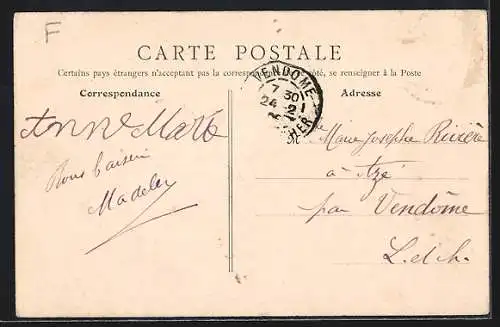 F
CARTE POSTALE
Certains pays étrangers n'acceptant pas la correspondance de ce côté, se renseigner à la Poste
Correspondance
Adresse
VENDOME
7 30
24 -2
CHER
Anne Marie
Bons baisers
Marie Josephe Rivière
à Azé
par Vendôme
L. et ch.